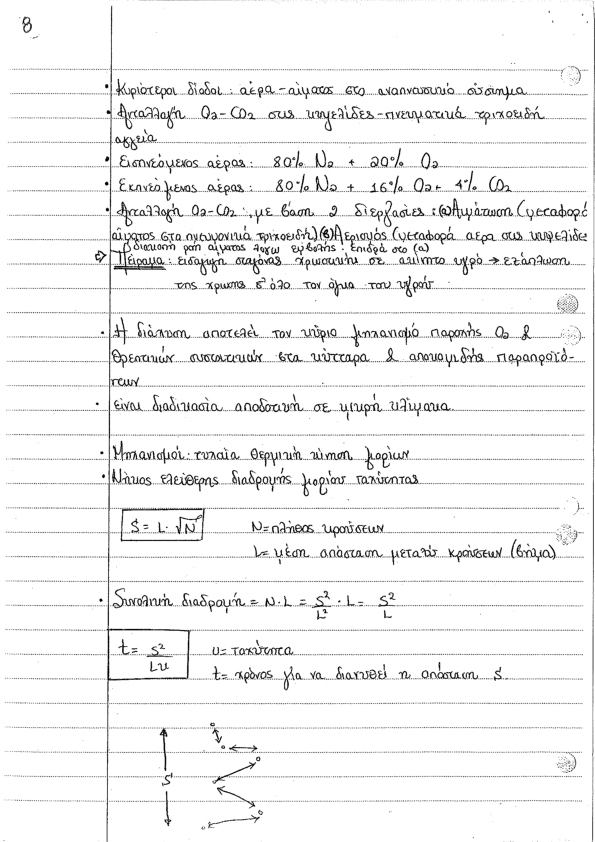 8
• Κυριότεροι δίοδοι: αέρα - αίματος στο αναπνευστικό σύστημα
• Ανταλλαγή O2-CO2 στις κυψελίδες - πνευματικά τριχοειδή
αγγεία
• Εισπνεόμενος αέρας: 80% N2 + 20% O2
• Εκπνεόμενος αέρας: 80% N2 + 16% O2 + 4% CO2
• Ανταλλαγή O2-CO2: με βάση 2 διεργασίες: (α) Αιμάτωση (μεταφορά
αίματος στα πνευμονικά τριχοειδή) (β) Αερισμός (μεταφορά αέρα στις κυψελίδε
διακοπή ροή αίματος λόγω εμβολής: επιδρά στο (α)
⇨ Πείραμα: εισαγωγή σταγόνας χρωστικής σε ακίνητο υγρό → εξάπλωση
της χρωστ σ' όλο τον όγκο του υγρού
• Η διάχυση αποτελεί τον κύριο μηχανισμό παροχής O2 &
θρεπτικών συστατικών στα κύτταρα & απομομιδής παραπροϊό-
ντων
• είναι διαδικασία αποδοτική σε μικρή κλίμακα.
• Μηχανισμοί: τυχαία θερμική κίνηση μορίων
• Μήκος ελεύθερης διαδρομής μορίου ταχύτητας
S = L · √N
N = πλήθος κρούσεων
L = μέση απόσταση μεταξύ κρούσεων (βήμα)
• Συνολική διαδρομή = N · L = S²/L² · L = S²/L
t = S²/Lu
u = ταχύτητα
t = χρόνος για να διανυθεί η απόσταση S.
S